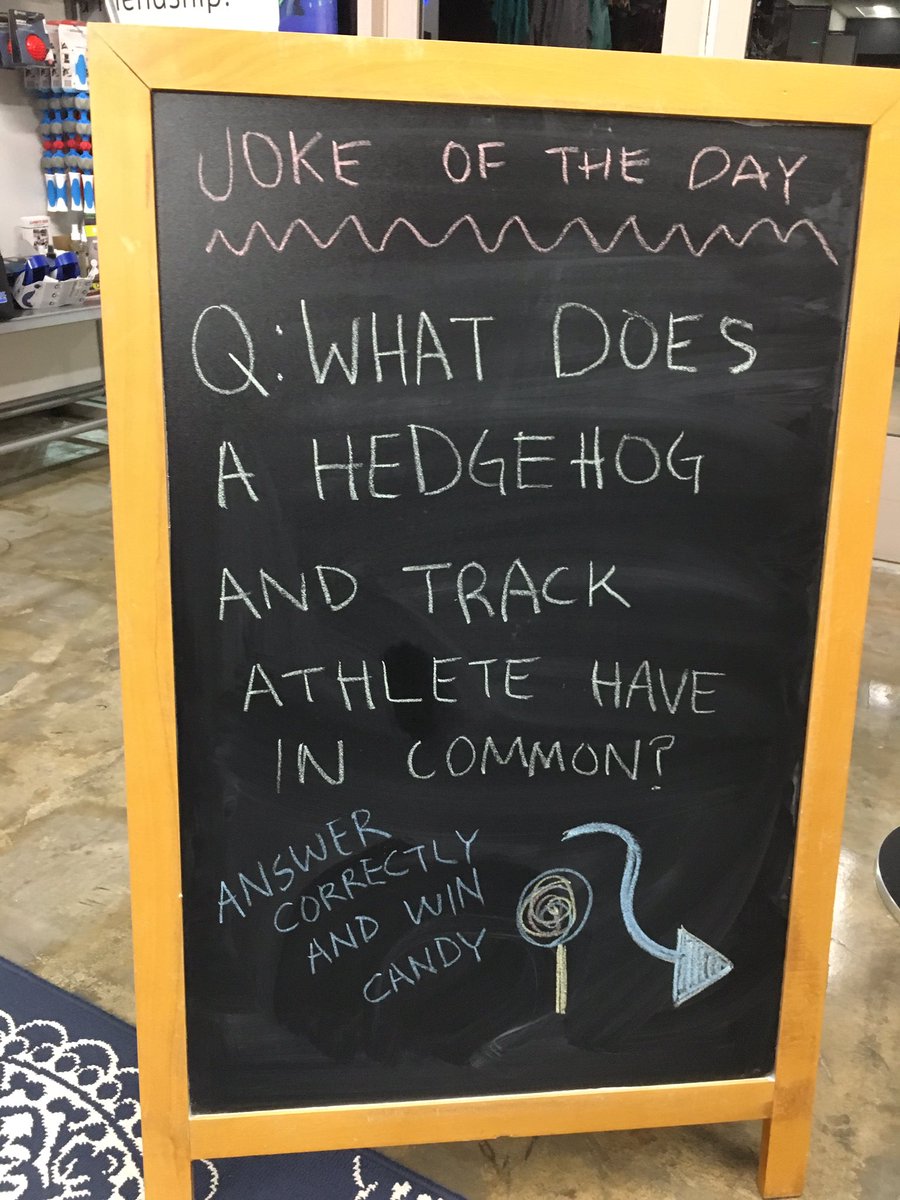 endship!
JOKE OF THE DAY
Q: WHAT DOES
A HEDGEHOG
AND TRACK
ATHLETE HAVE
IN COMMON?
ANSWER
CORRECTLY
AND WIN
CANDY